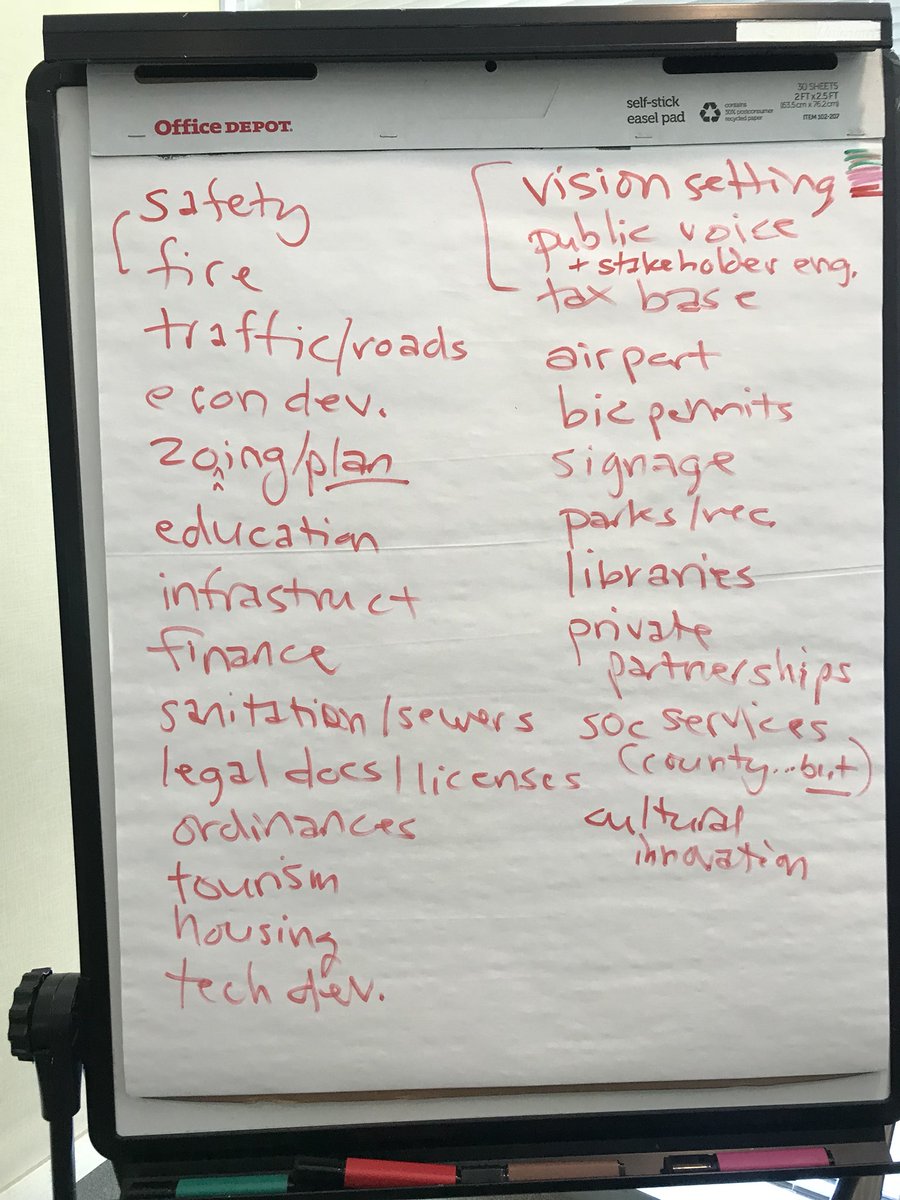 Office DEPOT.
self-stick
easel pad
contains
30% postconsumer
recycled paper
30 SHEETS
2 FT x 2.5 FT
(63.5 cm x 76.2 cm)
ITEM 102-207
safety
fire
traffic/roads
econ dev.
zoing/plan
education
infrastruct
finance
sanitation/sewers
legal docs/licenses
ordinances
tourism
housing
tech dev.
vision setting
public voice
+ stakeholder eng.
tax base
airport
bic permits
signage
parks/rec.
libraries
private
partnerships
soc services
(county...but)
cultural
innovation